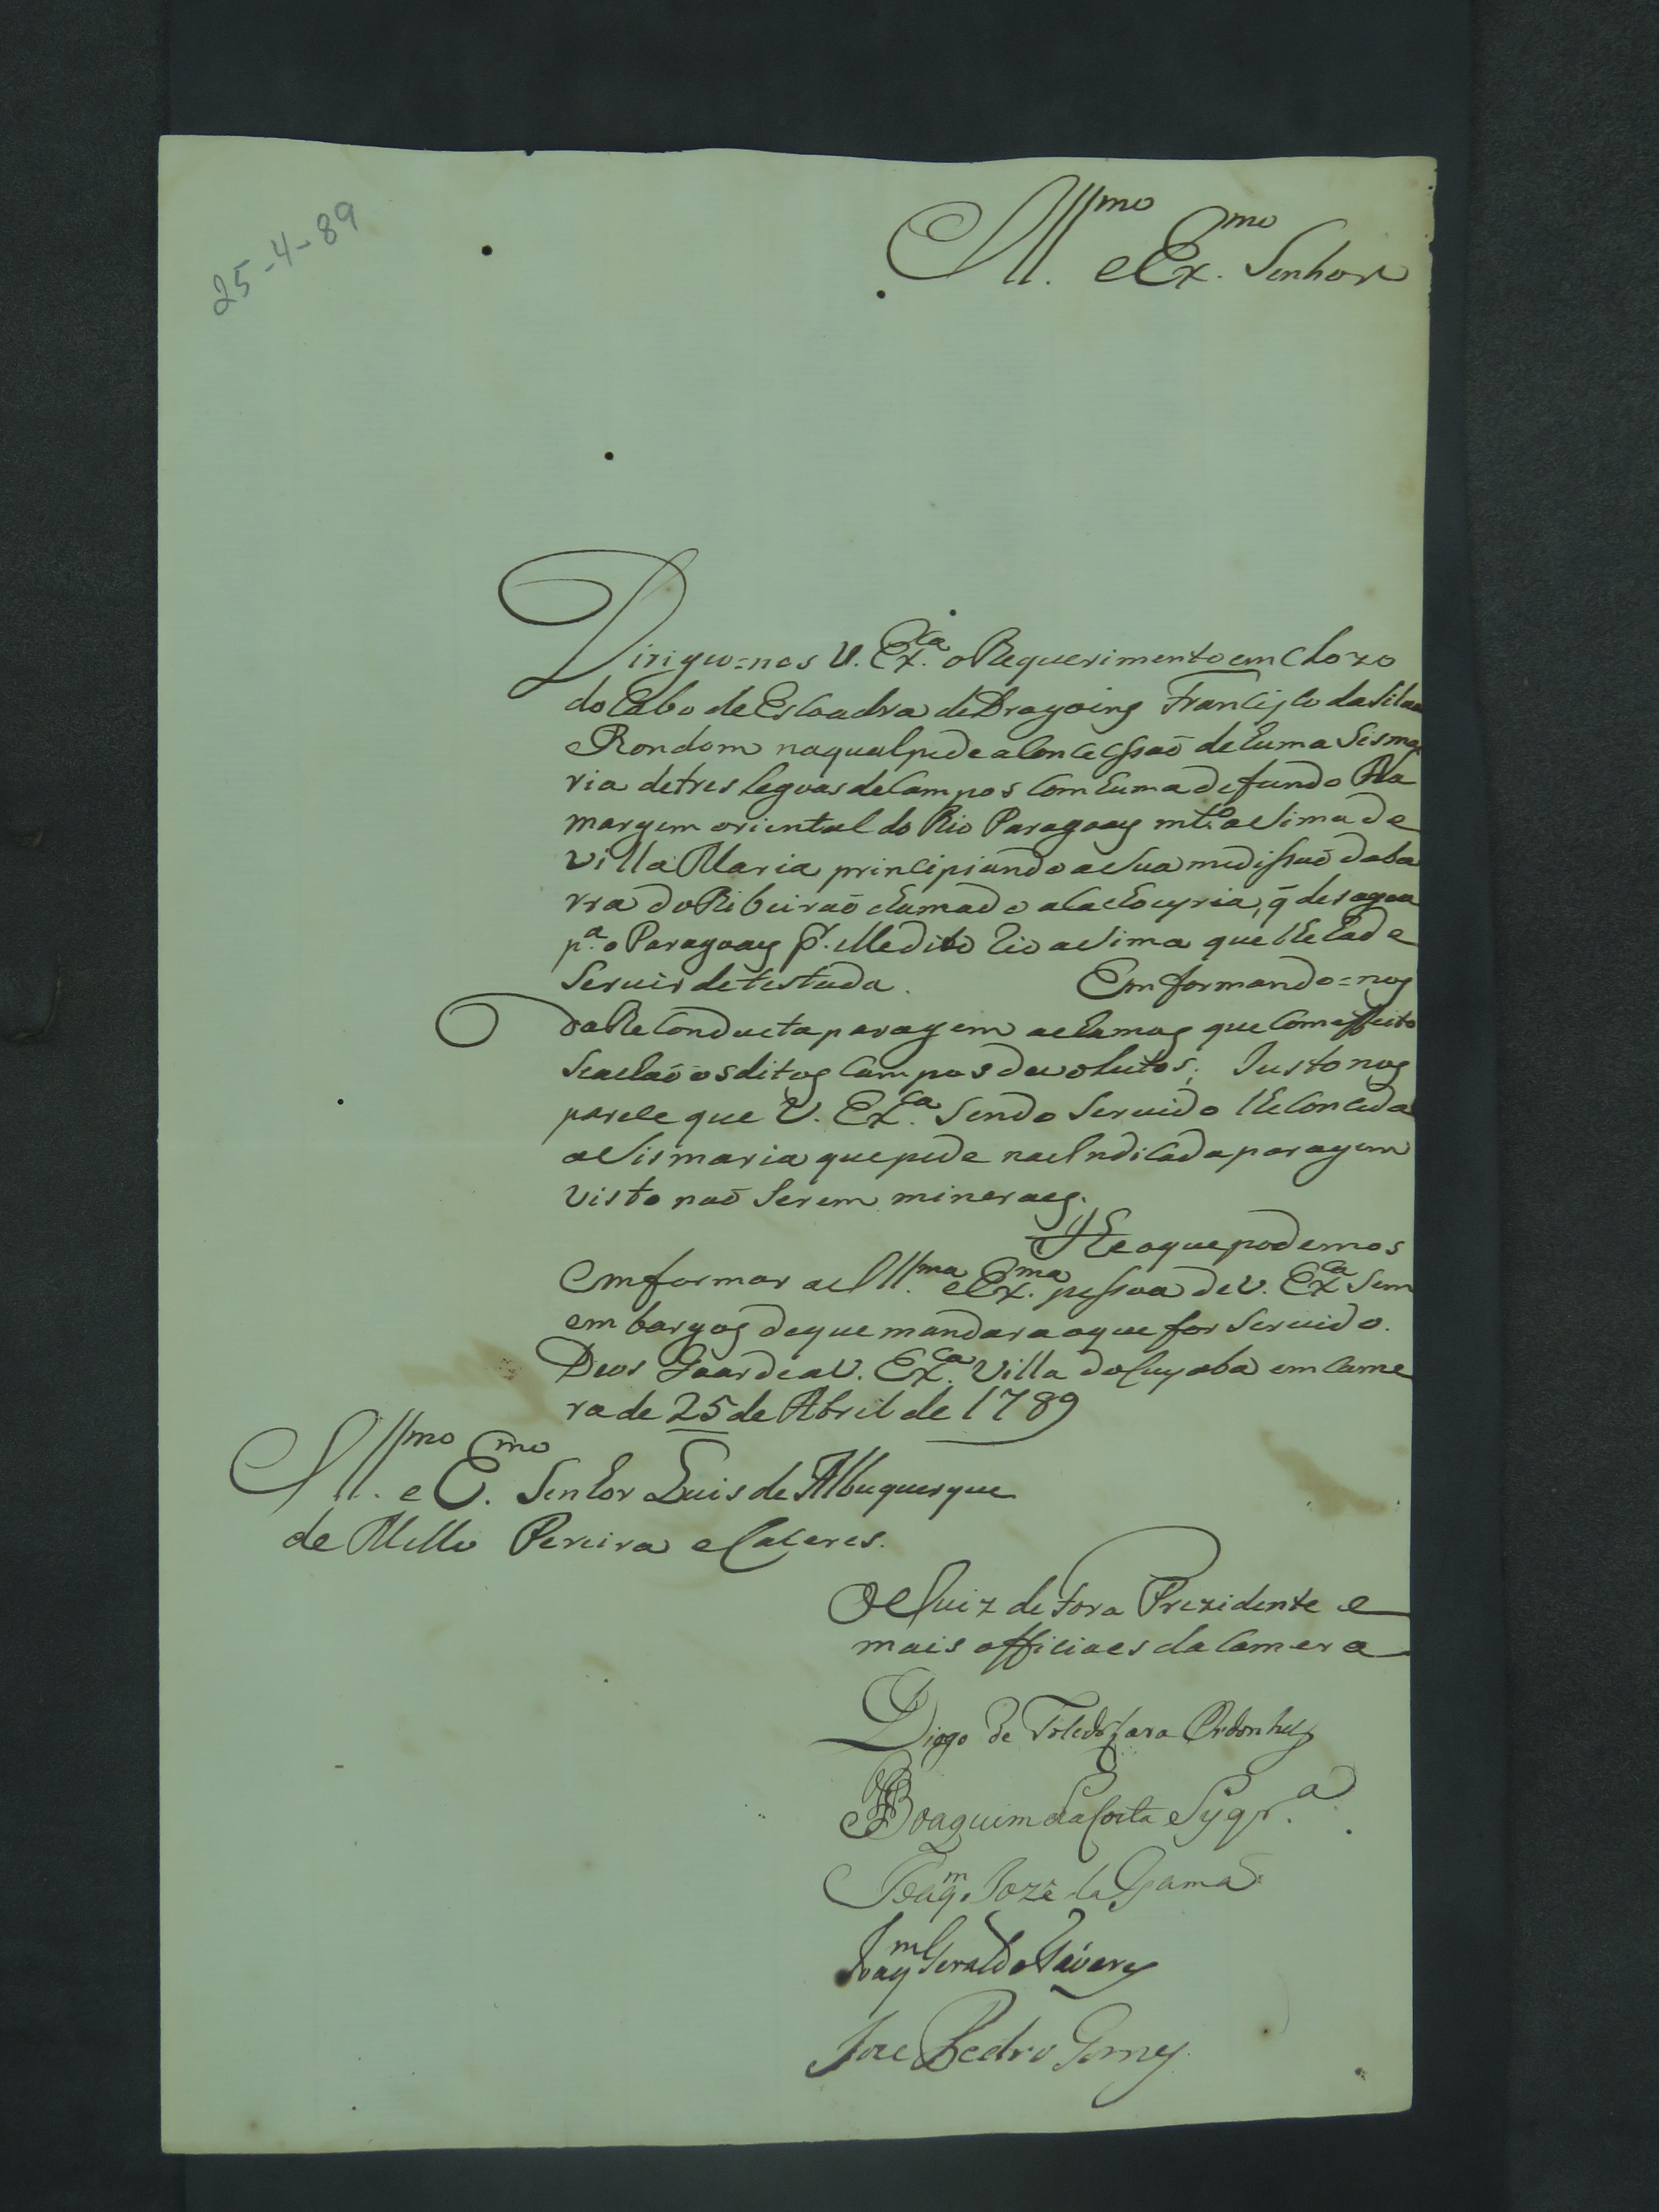 25-4-89
Ill.mo e Ex.mo Senhor
Dirigio=nos V. Ex.ca o Requerimento emclozo
do Cabo de Escoadra de Dragoins Francisco da Silva
e Rondom na qual pede a Concessaõ de huma Sisma
ria de tres legoas de Campos com huma de fundo Na
margem oriental do Rio Paragoay mt.o asima de
Villa Maria principiando a sua medissaõ da ba
rra do Ribeiraõ chamado q̃ desagoa
p.a o Paragoay p.r dito Rio asima que lhe hade
Servir de testada. Emformando=nos
da paragem achamos que com effeito
se achaõ os ditos Campos devolutos; Justo nos
parece que V. Ex.ca Sendo Servido lhe Conceda
a Sismaria que pede na Indicada paragem
visto naõ Serem mineraes.
He o que podemos
emformar a Ill.ma e Ex.ma pessoa de V. Ex.ca Sem
embargos de que mandara o que for Servido.
Deos Guarde a V. Ex.ca Villa do Cuyaba em Came
ra de 25 de Abril de 1789
Ill.mo e E.mo Senhor Luis de Albuquerque
de Mello Pereira e Caceres.
O Juiz de Fora Prezidente e
mais officiaes da Camera
Diogo de Toledo Lara Ordonhes
Joaquim da Costa e Syqr.a
Joaq.m Jozè da Gama
Joaq.m Geraldo Tavares
Joze Pedro Gomes